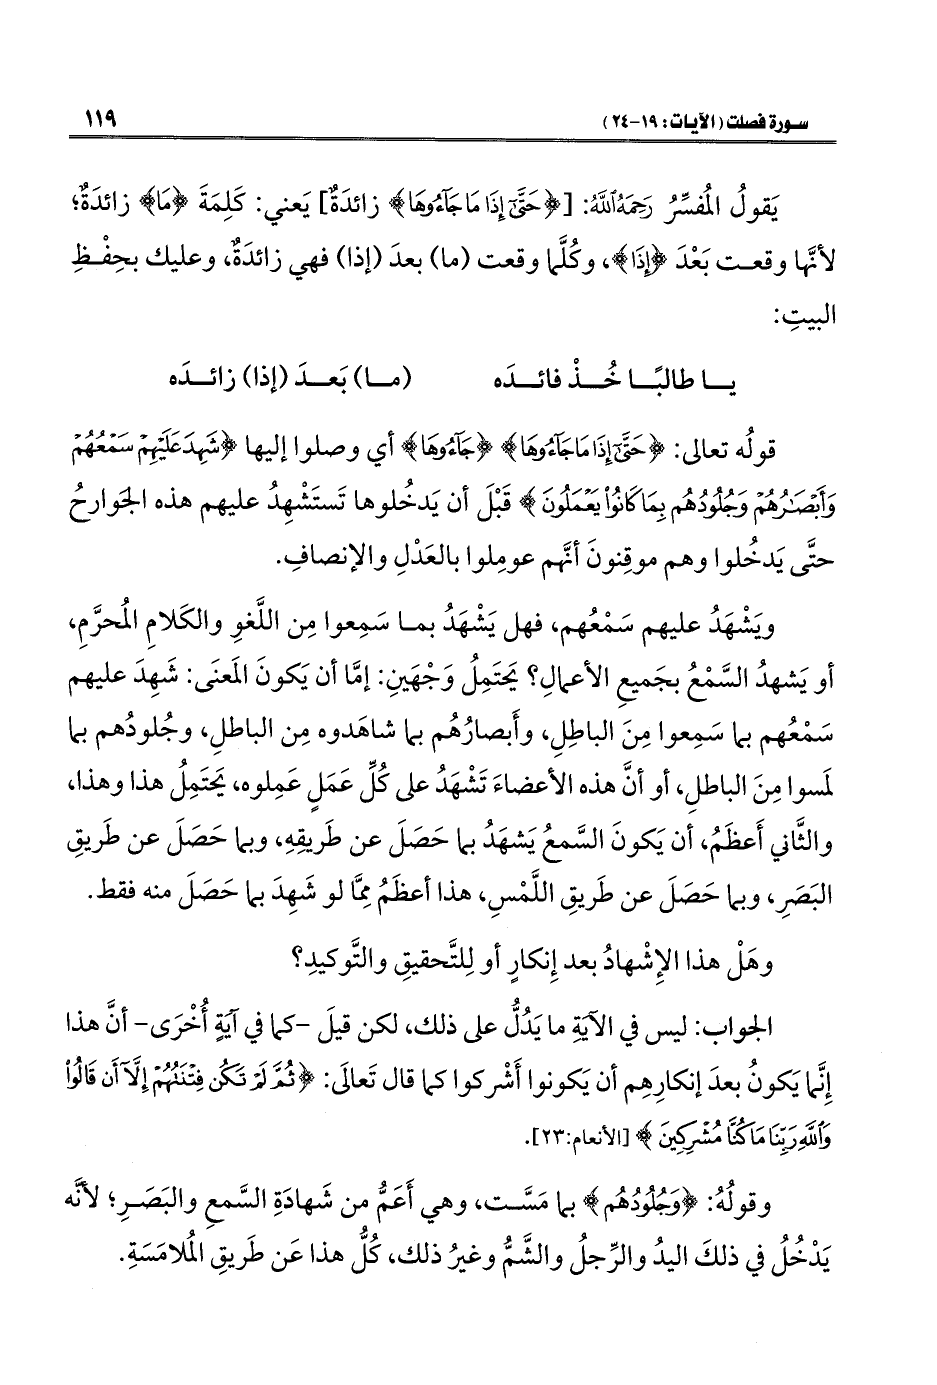 سورة فصلت (الآيات: ١٩-٢٤) ١١٩
يَقولُ المُفسِّرُ رَحِمَهُ اللَّهُ: [﴿حَتَّىٰٓ إِذَا مَا جَآءُوهَا﴾ زائدَةٌ] يَعني: كَلِمَةَ ﴿مَا﴾ زائدَةٌ؛
لأنَّها وقعت بَعْدَ ﴿إِذَا﴾، وكُلَّما وقعت (ما) بعدَ (إذا) فهي زائدَةٌ، وعليك بحِفْظِ
البيتِ:
يــا طالبًــا خُــذْ فائــدَه (مــا) بَعــدَ (إذا) زائــدَه
قولُه تعالى: ﴿حَتَّىٰٓ إِذَا مَا جَآءُوهَا﴾ ﴿جَآءُوهَا﴾ أي وصلوا إليها ﴿شَهِدَ عَلَيْهِمْ سَمْعُهُمْ
وَأَبْصَٰرُهُمْ وَجُلُودُهُم بِمَا كَانُوا۟ يَعْمَلُونَ﴾ قَبْلَ أن يَدخُلوها تَستَشْهِدُ عليهم هذه الجَوارحُ
حتَّى يَدخُلوا وهم موقِنونَ أنَّهم عوملوا بالعَدْلِ والإنصافِ.
ويَشْهَدُ عليهم سَمْعُهم، فهل يَشْهَدُ بمـا سَمِعوا مِن اللَّغوِ والكَلامِ المُحرَّمِ،
أو يَشهدُ السَّمْعُ بجَميعِ الأعمالِ؟ يَحتَمِلُ وَجْهَينِ: إمَّا أن يَكونَ المَعنَى: شَهِدَ عليهم
سَمْعُهم بما سَمِعوا مِنَ الباطِلِ، وأَبصارُهُم بما شاهَدوه مِن الباطلِ، وجُلودُهم بما
لمَسوا مِنَ الباطلِ، أو أنَّ هذه الأعضاءَ تَشْهَدُ على كُلِّ عَمَلٍ عَمِلوه، يَحتَمِلُ هذا وهذا،
والثَّاني أَعظَمُ، أن يَكونَ السَّمعُ يَشهدُ بما حَصَلَ عن طَريقِهِ، وبما حَصَلَ عن طَريقِ
البَصَرِ، وبما حَصَلَ عن طَريقِ اللَّمْسِ، هذا أعظَمُ ممَّا لو شَهِدَ بما حَصَلَ منه فقط.
وهَلْ هذا الإشْهادُ بعد إنكارٍ أو لِلتَّحقيقِ والتَّوكيدِ؟
الجواب: ليس في الآيَةِ ما يَدُلُّ على ذلك، لكن قيلَ -كما في آيَةٍ أُخْرَى- أنَّ هذا
إنَّما يَكونُ بعدَ إنكارِهِم أن يَكونوا أَشْركوا كما قال تَعالَى: ﴿ثُمَّ لَمْ تَكُن فِتْنَتُهُمْ إِلَّآ أَن قَالُوا۟
وَٱللَّهِ رَبِّنَا مَا كُنَّا مُشْرِكِينَ﴾ [الأنعام:٢٣].
وقولُهُ: ﴿وَجُلُودُهُم﴾ بما مَسَّـت، وهي أَعَمُّ من شَهادَةِ السَّمعِ والبَصَـرِ؛ لأنَّه
يَدْخُلُ في ذلكَ اليدُ والرِّجلُ والشَّمُّ وغيرُ ذلك، كُلُّ هذا عَن طَريقِ المُلامَسَةِ.